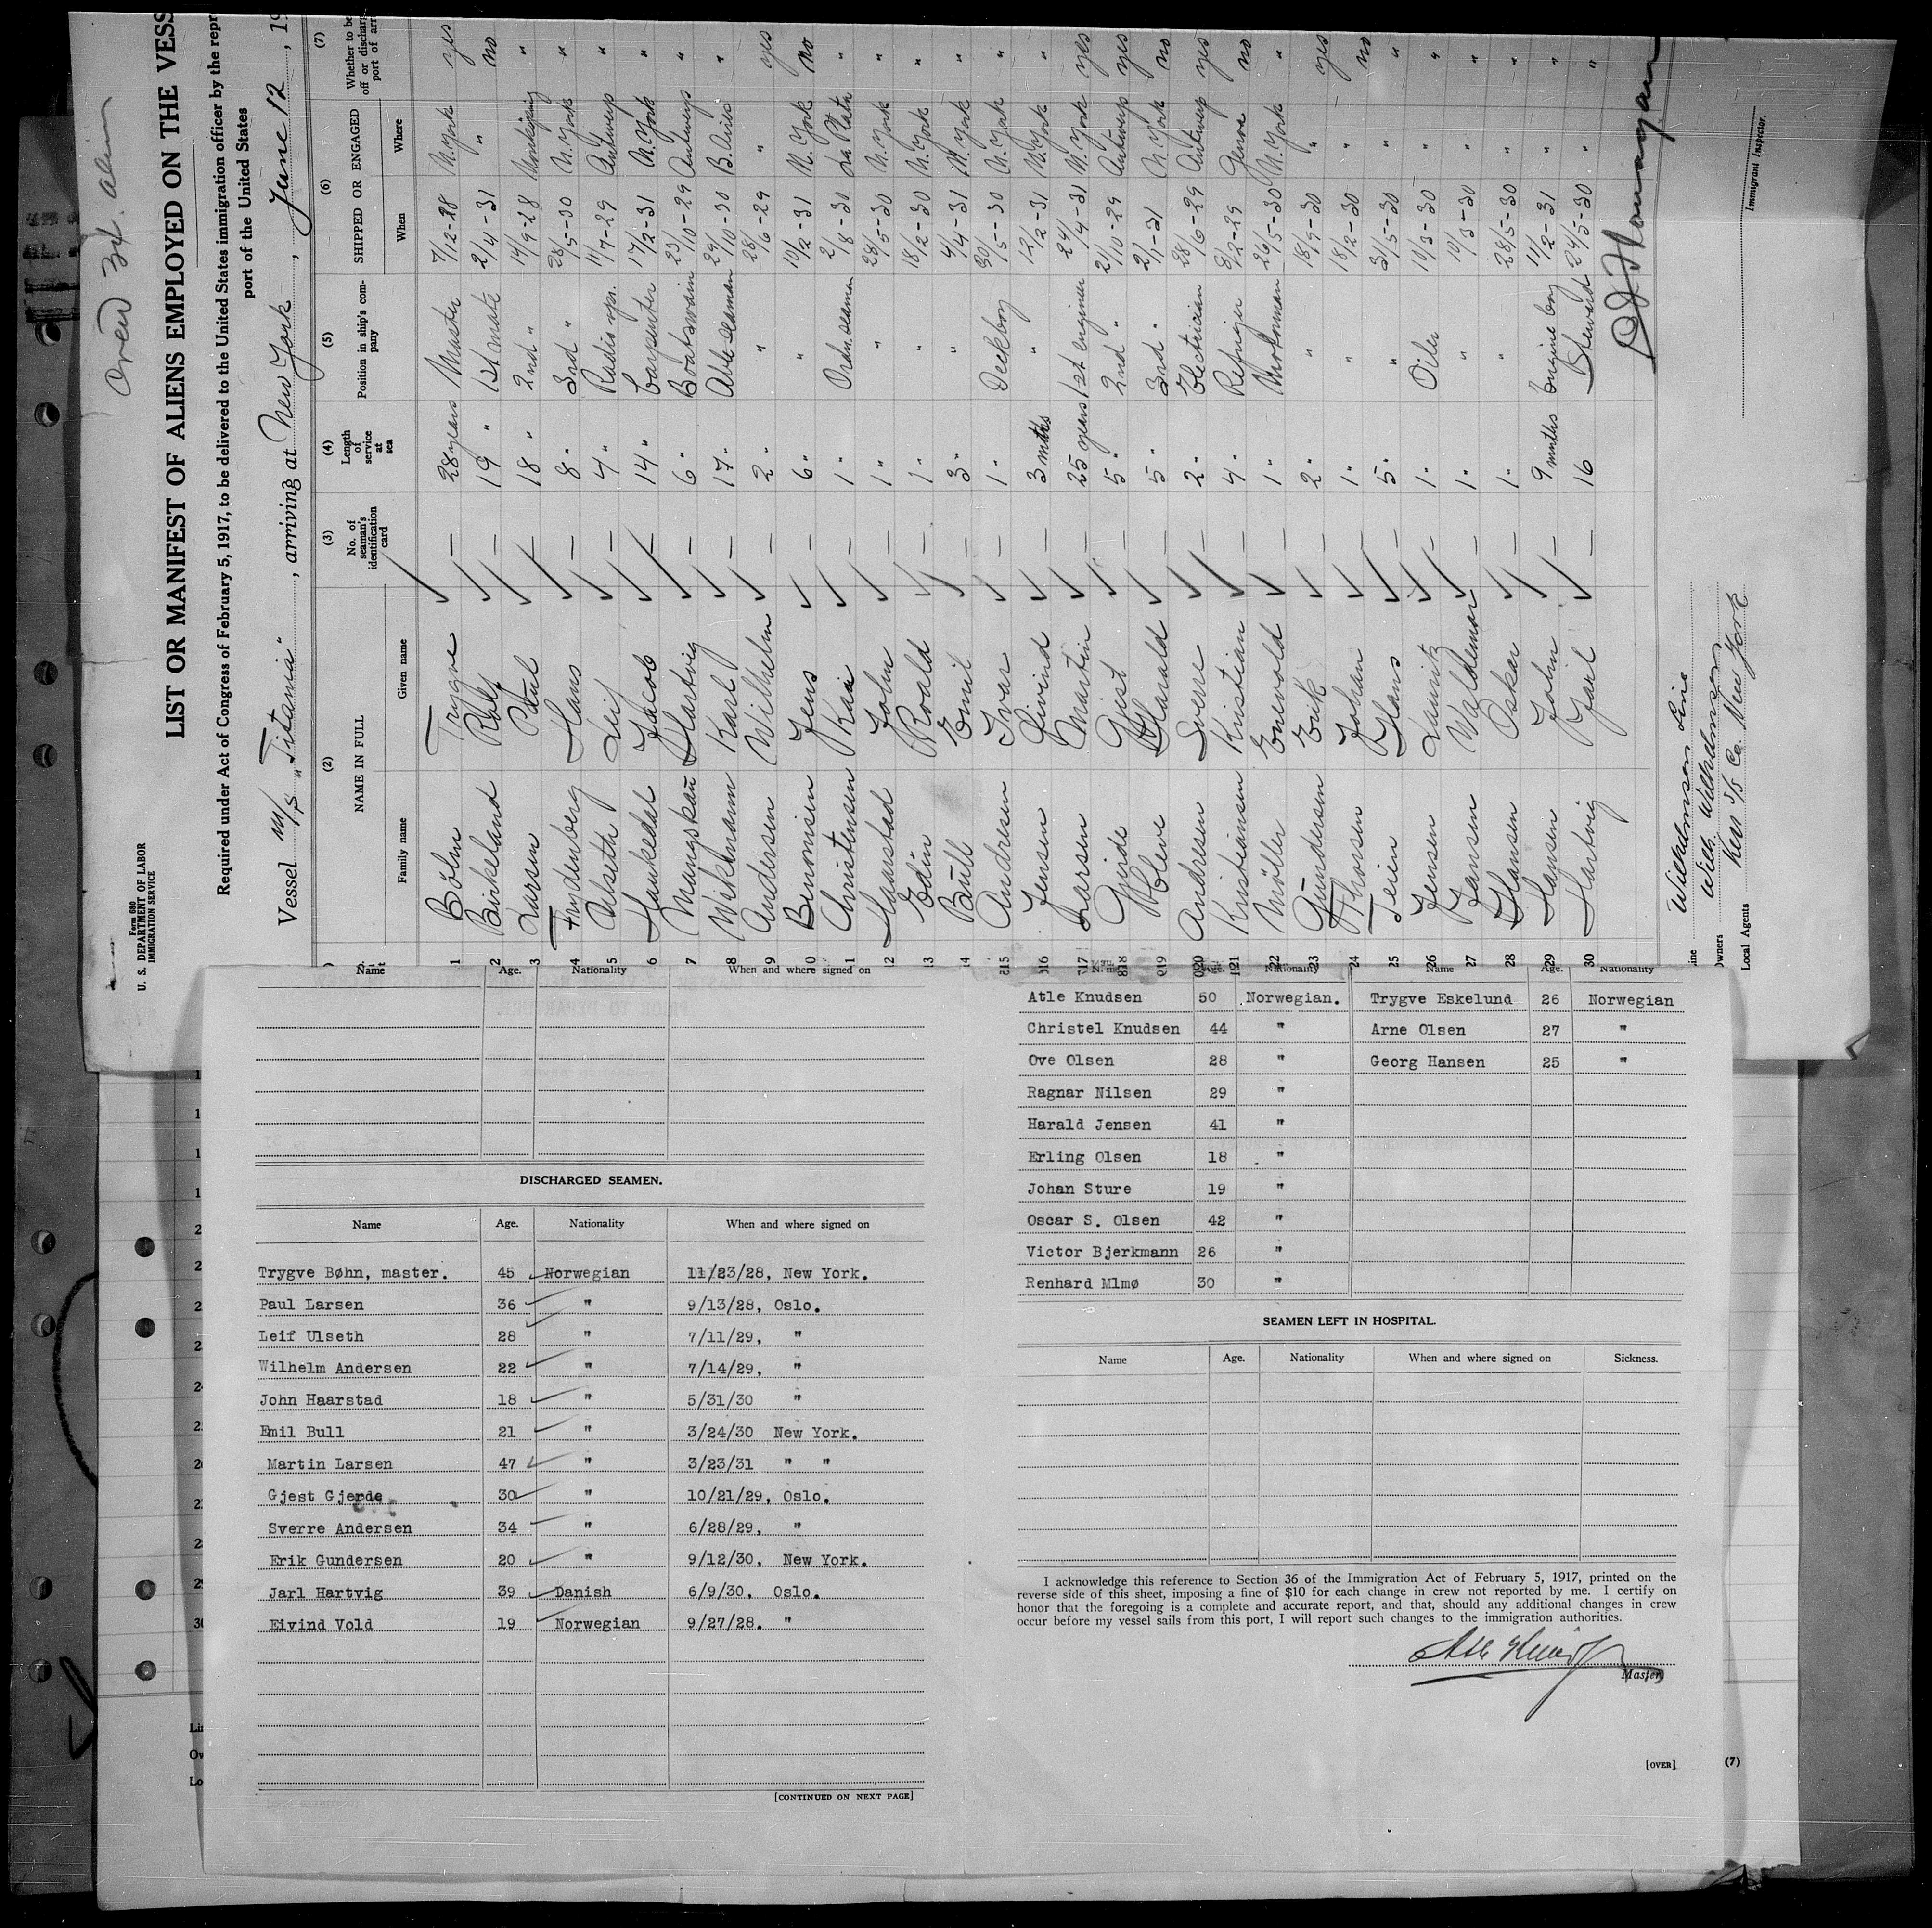 Crew 34. aliens
Form 680
U. S. DEPARTMENT OF LABOR
IMMIGRATION SERVICE
LIST OR MANIFEST OF ALIENS EMPLOYED ON THE VESS
Required under Act of Congress of February 5, 1917, to be delivered to the United States immigration officer by the repr
port of the United States
Vessel M/S "Titania", arriving at New York, June 12, 19
(2) (3) (4) (5) (6) (7)
NAME IN FULL No. of seaman's identification card Length of service at sea Position in ship's company SHIPPED OR ENGAGED Whether to be
off or discharg
port of arr
Family name Given name When Where
1 Böhn Trygve — 28 years Master 7/12-28 N. York yes
2 Birkeland Rolf — 19 " 1st mate 2/4-31 " no
3 Larsen Paul — 18 " 2nd " 14/9-28 "
4 Frydenberg Hans — 8 " 3rd " 28/5-30 N. York "
5 Ulseth Leif — 4 " Radio opr. 11/7-29 Antwerp "
6 Haukedal Jacob — 14 " Carpenter 17/2-31 N. York "
7 Mangskau Hartvig — 6 " Boatswain 23/10-29 Antwerp "
8 Wiklmann Karl — 17 " Able seaman 29/10-30 B. Aires "
9 Andersen Wilhelm — 2 " " 28/6-29 " yes
10 Benonisen Jens — 6 " " 10/2-31 N. York no
11 Christensen Kai — 1 " Ordn. seaman 2/8-30 La Plata "
12 Haarstad John — 1 " " 28/5-30 N. York "
13 Edin Roald — 1 " " 18/2-30 N. York "
14 Bull Emil — 3 " " 4/4-31 N. York "
15 Andresen Ivar — 1 " Deckboy 30/5-30 N. York "
16 Jensen Eivind — 3 mnths " 12/2-31 N. York "
17 Larsen Martin — 25 years 1st engineer 24/4-31 N. York yes
18 Gjerde Gjest — 5 " 2nd " 21/10-29 Antwerp yes
19 Kleve Harald — 5 " 3rd " 2/1-31 N. York no
20 Andresen Sverre — 2 " Electrician 28/6-29 Antwerp yes
21 Kristiansen Kristian — 4 " Refriger 8/12-29 Genoa no
22 Möller Enevold — 1 " Motorman 26/5-30 N. York "
23 Gundersen Erik — 2 " " 18/9-30 " yes
24 Thorsen Johan — 1 " " 18/2-30 " no
25 Teien Hans — 5 " " 31/5-30 " "
26 Jensen Lauritz — 1 " Oiler 10/3-30 " "
27 Jansen Waldemar — 1 " " 10/3-30 " "
28 Hansen Oskar — 1 " " 28/5-30 " "
29 Hansen John — 9 mnths Engine boy 11/2-31 " "
30 Hartvig Jarl — 16 Steward 24/5-30 " "
Immigrant Inspector.
Line Wilhelmsen Line
Owners Wilh. Wilhelmsen
Local Agents New York
Name Age. Nationality When and where signed on
DISCHARGED SEAMEN.
Name Age. Nationality When and where signed on
Trygve Bøhn, master. 45 Norwegian 11/23/28, New York.
Paul Larsen 36 " 9/13/28, Oslo.
Leif Ulseth 28 " 7/11/29, "
Wilhelm Andersen 22 " 7/14/29, "
John Haarstad 18 " 5/31/30 "
Emil Bull 21 " 3/24/30 New York.
Martin Larsen 47 " 3/23/31 " "
Gjest Gjerde 30 " 10/21/29, Oslo.
Sverre Andersen 34 " 6/28/29, "
Erik Gundersen 20 " 9/12/30, New York.
Jarl Hartvig 39 Danish 6/9/30, Oslo.
Eivind Vold 19 Norwegian 9/27/28. "
[CONTINUED ON NEXT PAGE]
Name Age. Nationality Name Age. Nationality
Atle Knudsen 50 Norwegian. Trygve Eskelund 26 Norwegian
Christel Knudsen 44 " Arne Olsen 27 "
Ove Olsen 28 " Georg Hansen 25 "
Ragnar Nilsen 29 "
Harald Jensen 41 "
Erling Olsen 18 "
Johan Sture 19 "
Oscar S. Olsen 42 "
Victor Bjerkmann 26 "
Renhard Mlmø 30 "
SEAMEN LEFT IN HOSPITAL.
Name Age. Nationality When and where signed on Sickness.
I acknowledge this reference to Section 36 of the Immigration Act of February 5, 1917, printed on the
reverse side of this sheet, imposing a fine of $10 for each change in crew not reported by me. I certify on
honor that the foregoing is a complete and accurate report, and that, should any additional changes in crew
occur before my vessel sails from this port, I will report such changes to the immigration authorities.
Master,
[OVER] (7)